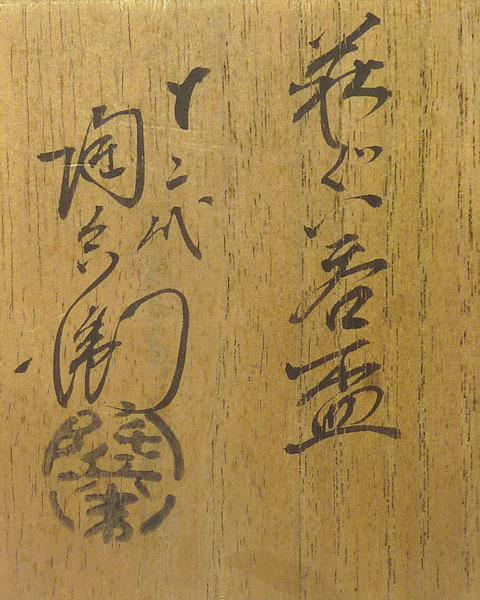 萩ぐい呑盃
十二代
陶兵衛